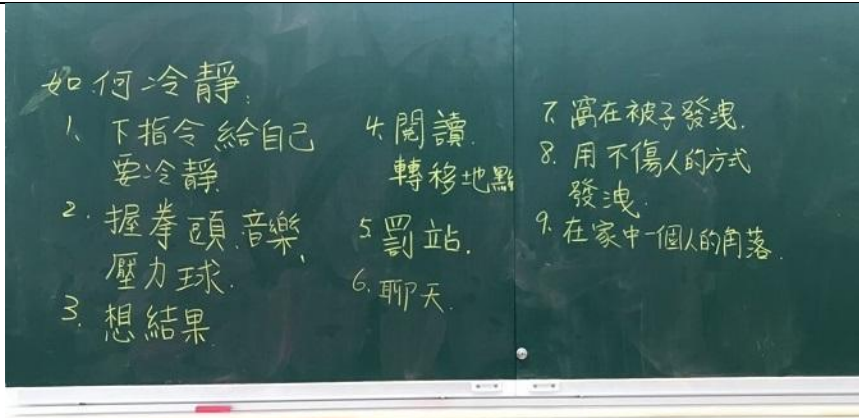 如何冷靜:
1、下指令給自己
要冷靜
2.握拳頭.音樂、
壓力球.
3.想結果
4.閱讀.
轉移地點
5.罰站.
6.聊天.
7.窩在被子發洩.
8.用不傷人的方式
發洩.
9.在家中一個人的角落.